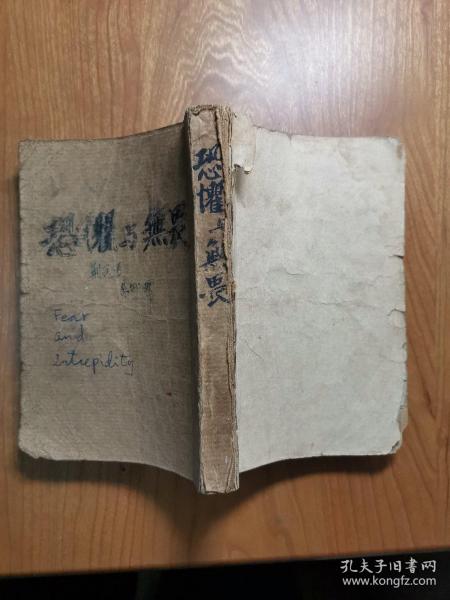 恐懼与無畏
Fear
and
Intrepidity
恐懼与無畏
孔夫子旧书网
www.kongfz.com